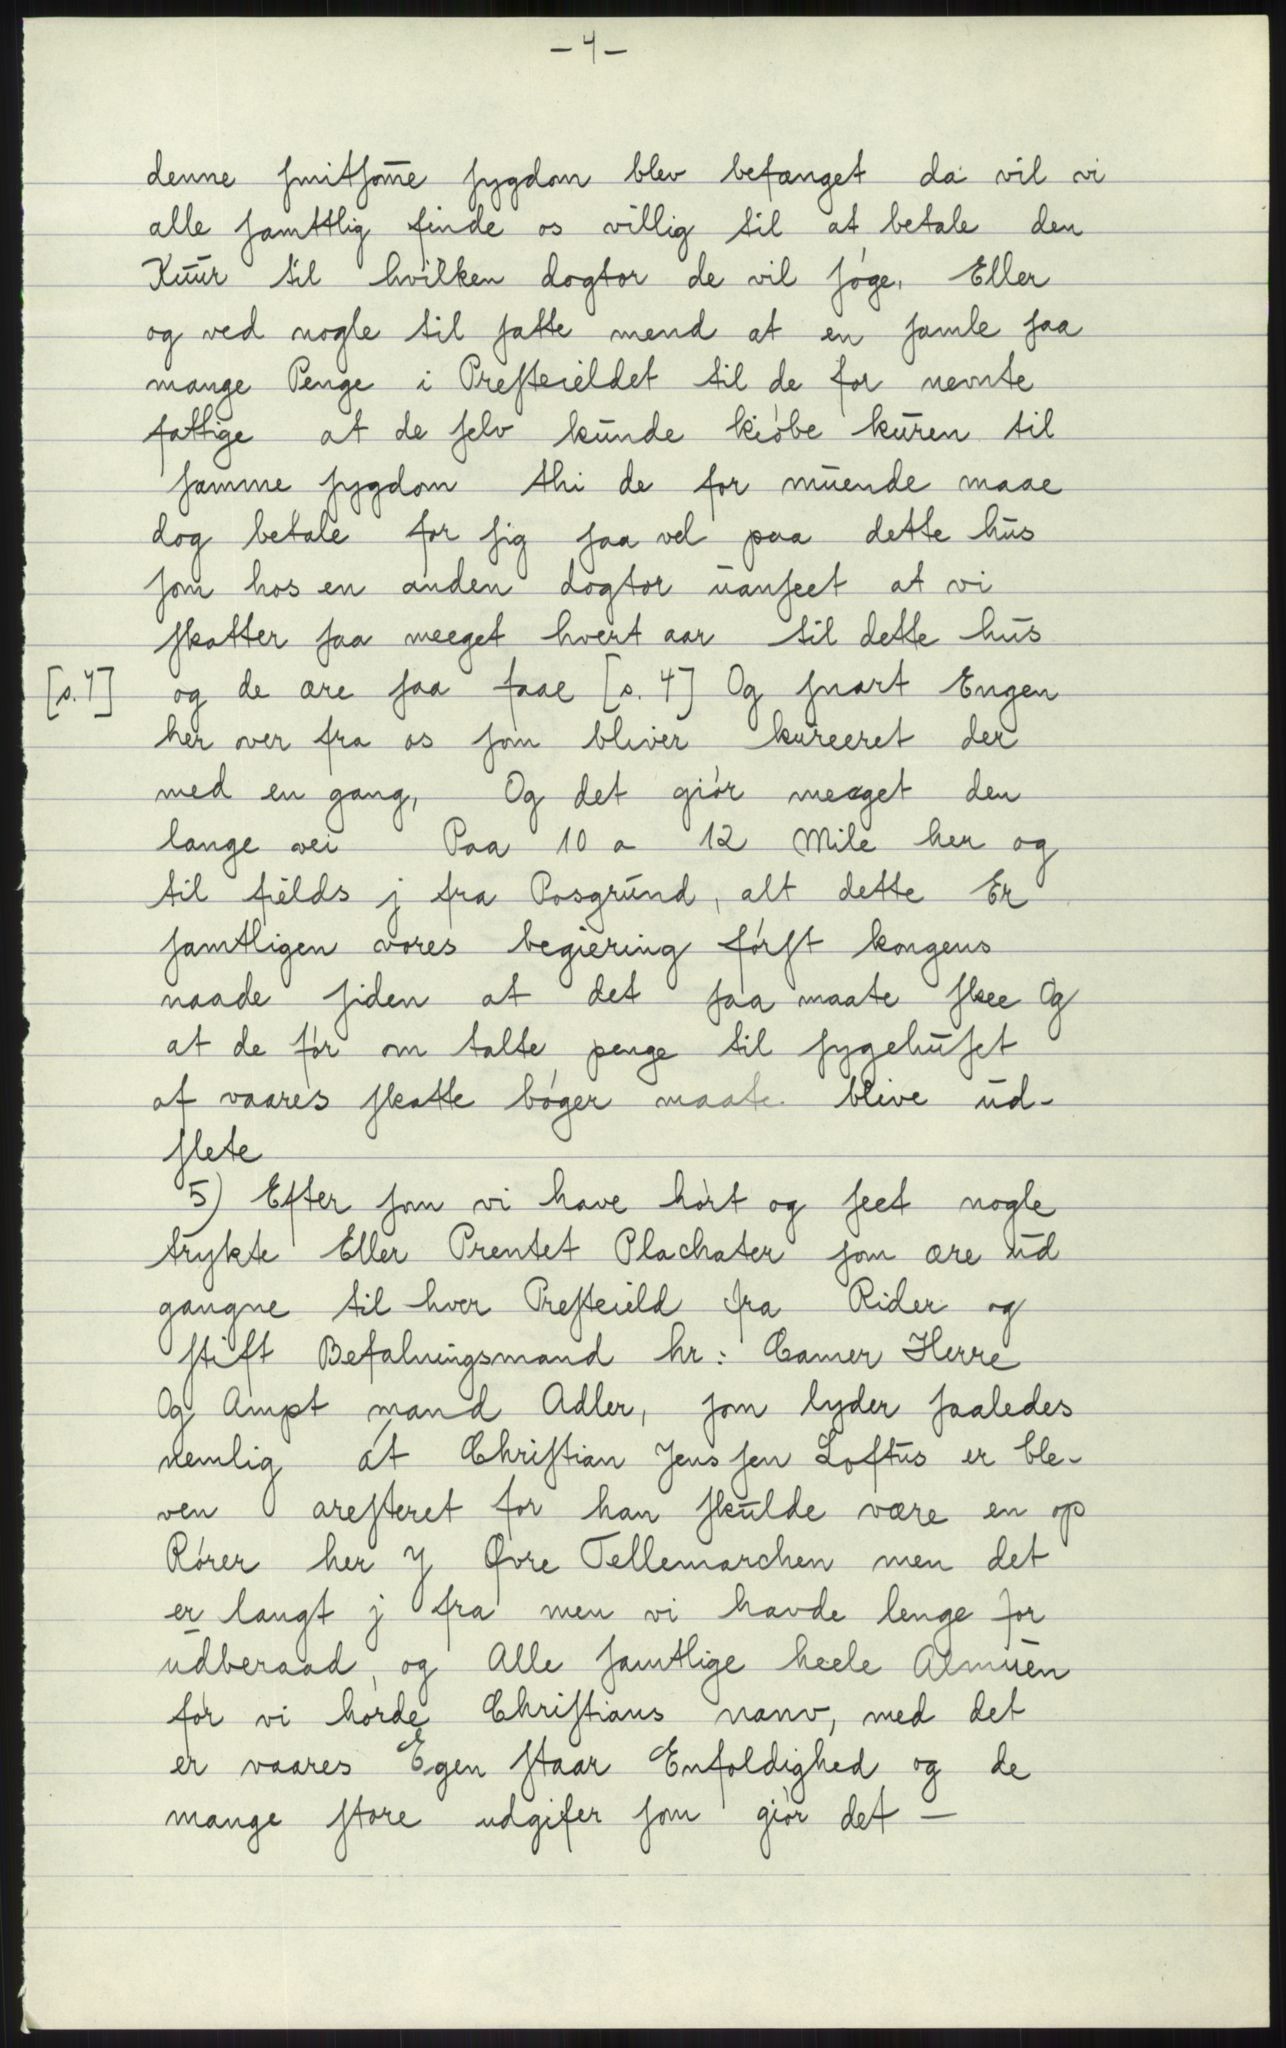 - 4 -
denne smitsom̅e sygdom blev befanget da vil vi
alle samttlig finde os villig til at betale den
Kuur til hvilken dogtor de vil søge, Eller
og ved nogle til satte mend at en samle saa
mange Penge i Presteieldet til de for nevnte
fattige at de selv kunde kiøbe kuren til
samme sygdom thi de for muende maae
dog betale for sig saa vel paa dette hus
som hos en anden dogtor uanseet at vi
skatter saa meeget hvert aar til dette hus
[s. 4] og de ære saa faae [s. 4] Og snart Engen
her over fra os som bliver kureeret der
med en gang, Og det giør meeget den
lange vei Paa 10 a 12 Mile her og
til fields j fra Posgrund, alt dette Er
samtligen vores begiering først kongens
naade siden at det saa maate skee Og
at de før om talte penge til sygehuset
af vaares skatte bøger maate blive ud-
slete
5) Efter som vi have hørt og seet nogle
trykte Eller Prentet Plachater som ære ud
gangne til hver Presteield fra Rider og
stift Befalningsmand hr: Camer Herre
Og Ampt mand Adler, som lyder saaledes
nemlig at Christian Jens sen Loftus er ble-
ven aresteret for han skulde være en op
Rører her J Øvre Tellemarchen men det
er langt j fra men vi havde lenge for
udberaad, og Alle samtlige heele Almuen
før vi hørde Christians nanv, med det
er vaares Egen staar Enfoldighed og de
mange store udgifer som giør det —